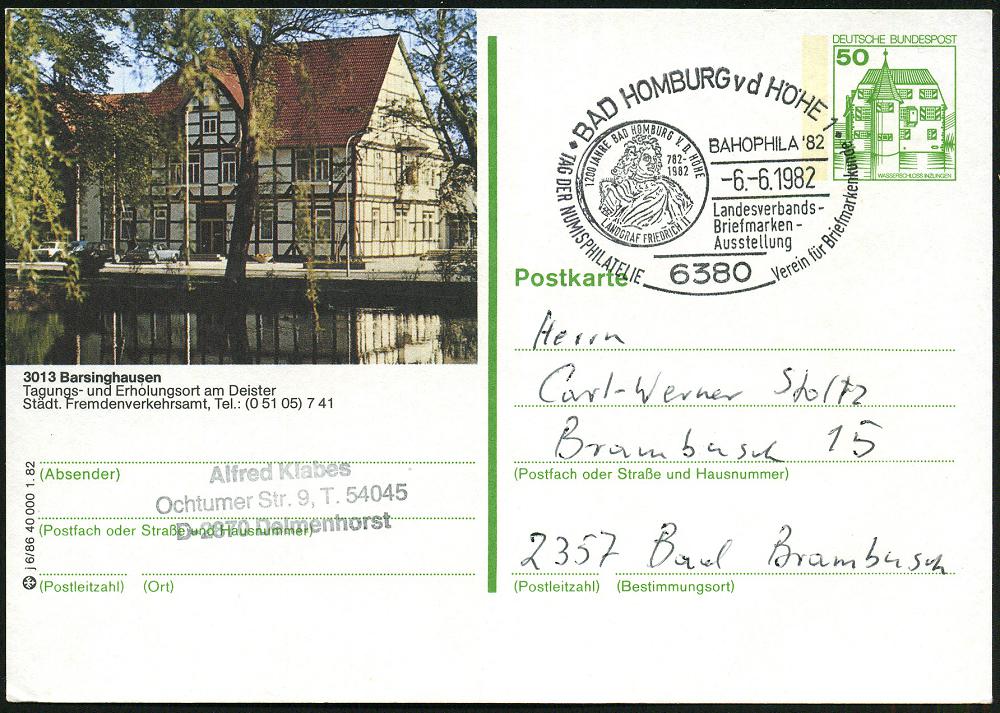 3013 Barsinghausen
Tagungs- und Erholungsort am Deister
Städt. Fremdenverkehrsamt, Tel.: (0 51 05) 7 41
(Absender)
Alfred Klabes
Ochtumer Str. 9, T. 54045
D-2870 Delmenhorst
(Postfach oder Straße und Hausnummer)
(Postleitzahl) (Ort)
j 6/86 40000 1.82
DEUTSCHE BUNDESPOST
50
WASSERSCHLOSS INZLINGEN
BAD HOMBURG v d HÖHE 1
TAG DER NUMISPHILATELIE
1200 JAHRE BAD HOMBURG V. D. HÖHE
782-
1982
LANDGRAF FRIEDRICH II
BAHOPHILA '82
-6.-6.1982
Landesverbands-
Briefmarken-
Ausstellung
6380
Verein für Briefmarkenkunde
Postkarte
Herrn
Carl-Werner Stoltz
Brambusch 15
(Postfach oder Straße und Hausnummer)
2357 Bad Brambusch
(Postleitzahl) (Bestimmungsort)